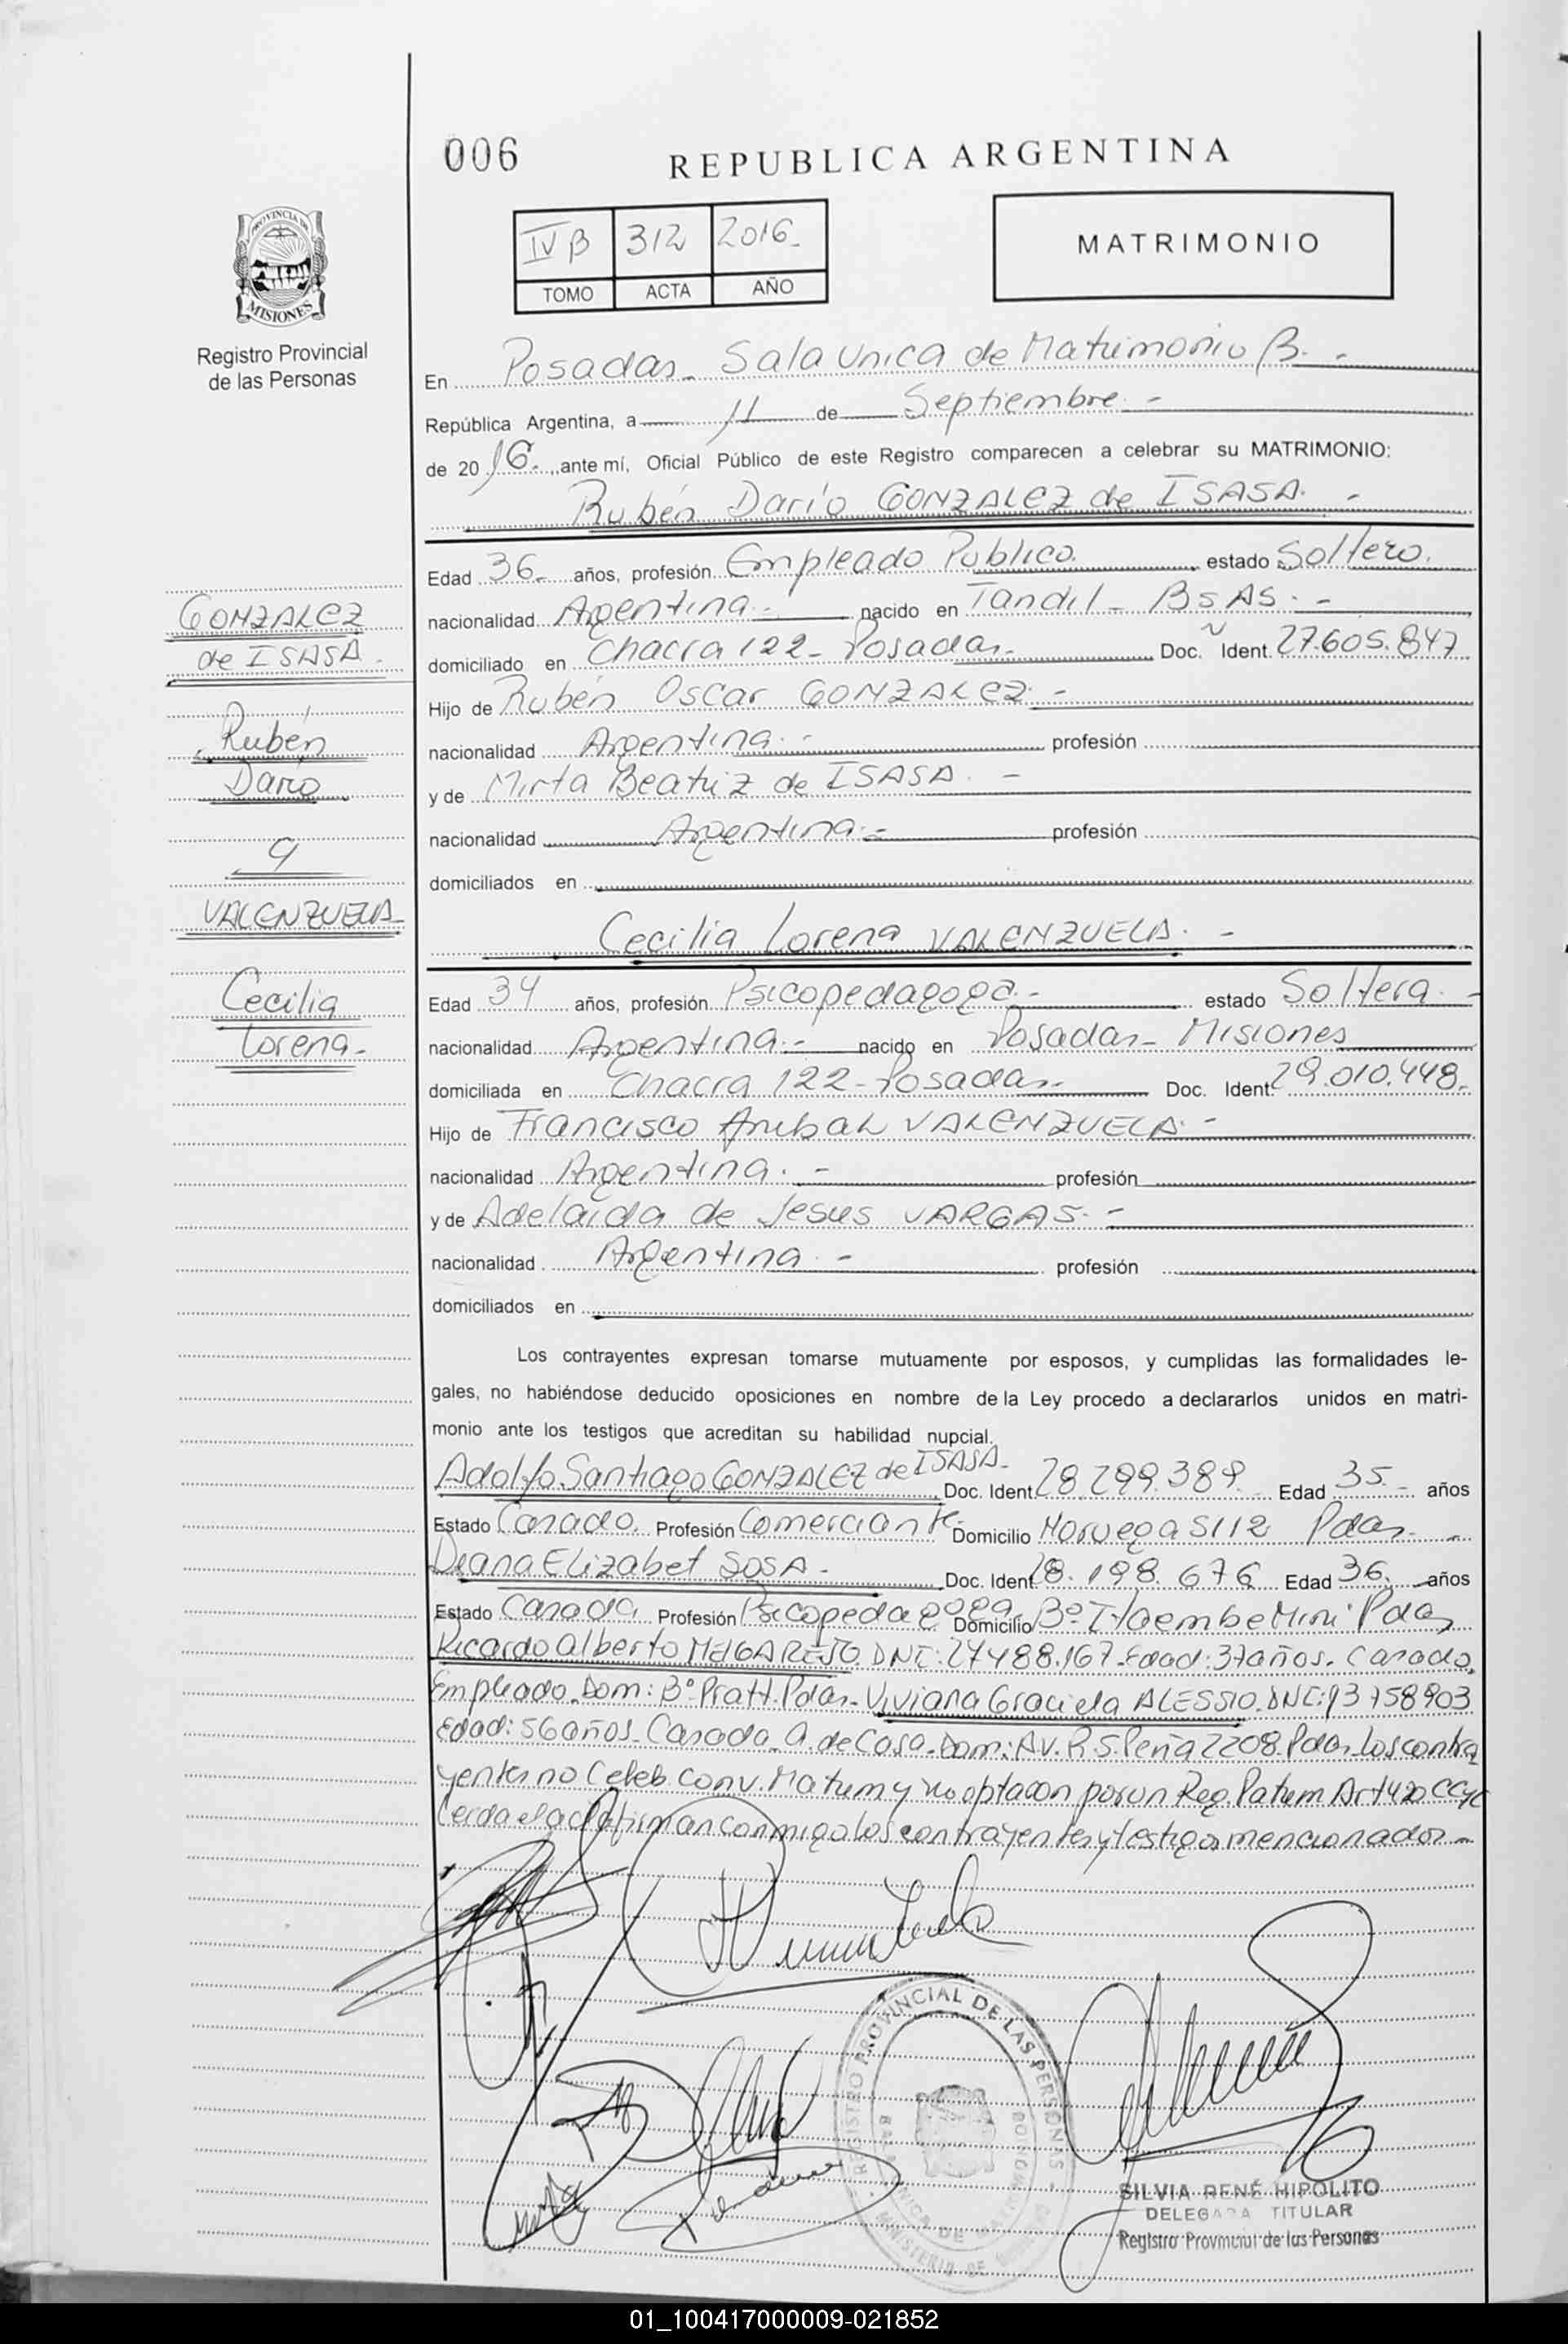 006
REPUBLICA ARGENTINA
IV B 312 2016.
TOMO ACTA AÑO
MATRIMONIO
PROVINCIA DE MISIONES
Registro Provincial
de las Personas
En Posadas - Sala Unica de Matrimonio B. -
República Argentina, a 11 de Septiembre. -
de 2016. ante mí, Oficial Público de este Registro comparecen a celebrar su MATRIMONIO:
Rubén Darío GONZALEZ de ISASA. -
Edad 36 años, profesión Empleado Público. estado Soltero.
nacionalidad Argentina. - nacido en Tandil - Bs As. -
domiciliado en Chacra 122 - Posadas. Doc. Ident. 27.605.847
Hijo de Rubén Oscar GONZALEZ. -
nacionalidad Argentina. - profesión
y de Mirta Beatriz de ISASA. -
nacionalidad Argentina. - profesión
domiciliados en
Cecilia Lorena VALENZUELA. -
Edad 34 años, profesión Psicopedagoga. - estado Soltera. -
nacionalidad Argentina. - nacido en Posadas - Misiones
domiciliada en Chacra 122 - Posadas. Doc. Ident. 29.010.448.
Hijo de Francisco Anibal VALENZUELA. -
nacionalidad Argentina. - profesión
y de Adelaida de Jesus VARGAS. -
nacionalidad Argentina. - profesión
domiciliados en
GONZALEZ
de ISASA.
Rubén
Darío
y
VALENZUELA
Cecilia
Lorena -
Los contrayentes expresan tomarse mutuamente por esposos, y cumplidas las formalidades le-
gales, no habiéndose deducido oposiciones en nombre de la Ley procedo a declararlos unidos en matri-
monio ante los testigos que acreditan su habilidad nupcial.
Adolfo Santiago GONZALEZ de ISASA - Doc. Ident. 28.299.389. Edad 35. - años
Estado Casado. Profesión Comerciante Domicilio Noruega 5112 Pdas. -
Diana Elizabet SOSA - Doc. Ident. 28.198.676 Edad 36. años
Estado Casada Profesión Psicopedagoga Domicilio Bº Itaembe Mini Pdas
Ricardo Alberto MELGAREJO. DNI: 27488.167. Edad: 37 años. Casado.
Empleado. Dom: Bº Pratt. Pdas - Viviana Graciela ALESSIO. DNI: 13758903
Edad: 56 años. Casada. A. de Casa. Dom: Av. R. S. Peña 2208. Pdas. Los contra
yentes no Celeb. Conv. Matrim y no optaron por un Reg. Patrim Art 420 CCyC
Leida el acta firman conmigo los contrayentes y testigos mencionados -
REGISTRO PROVINCIAL DE LAS PERSONAS
SILVIA RENÉ HIPOLITO
DELEGADA TITULAR
Registro Provincial de las Personas
01_100417000009-021852